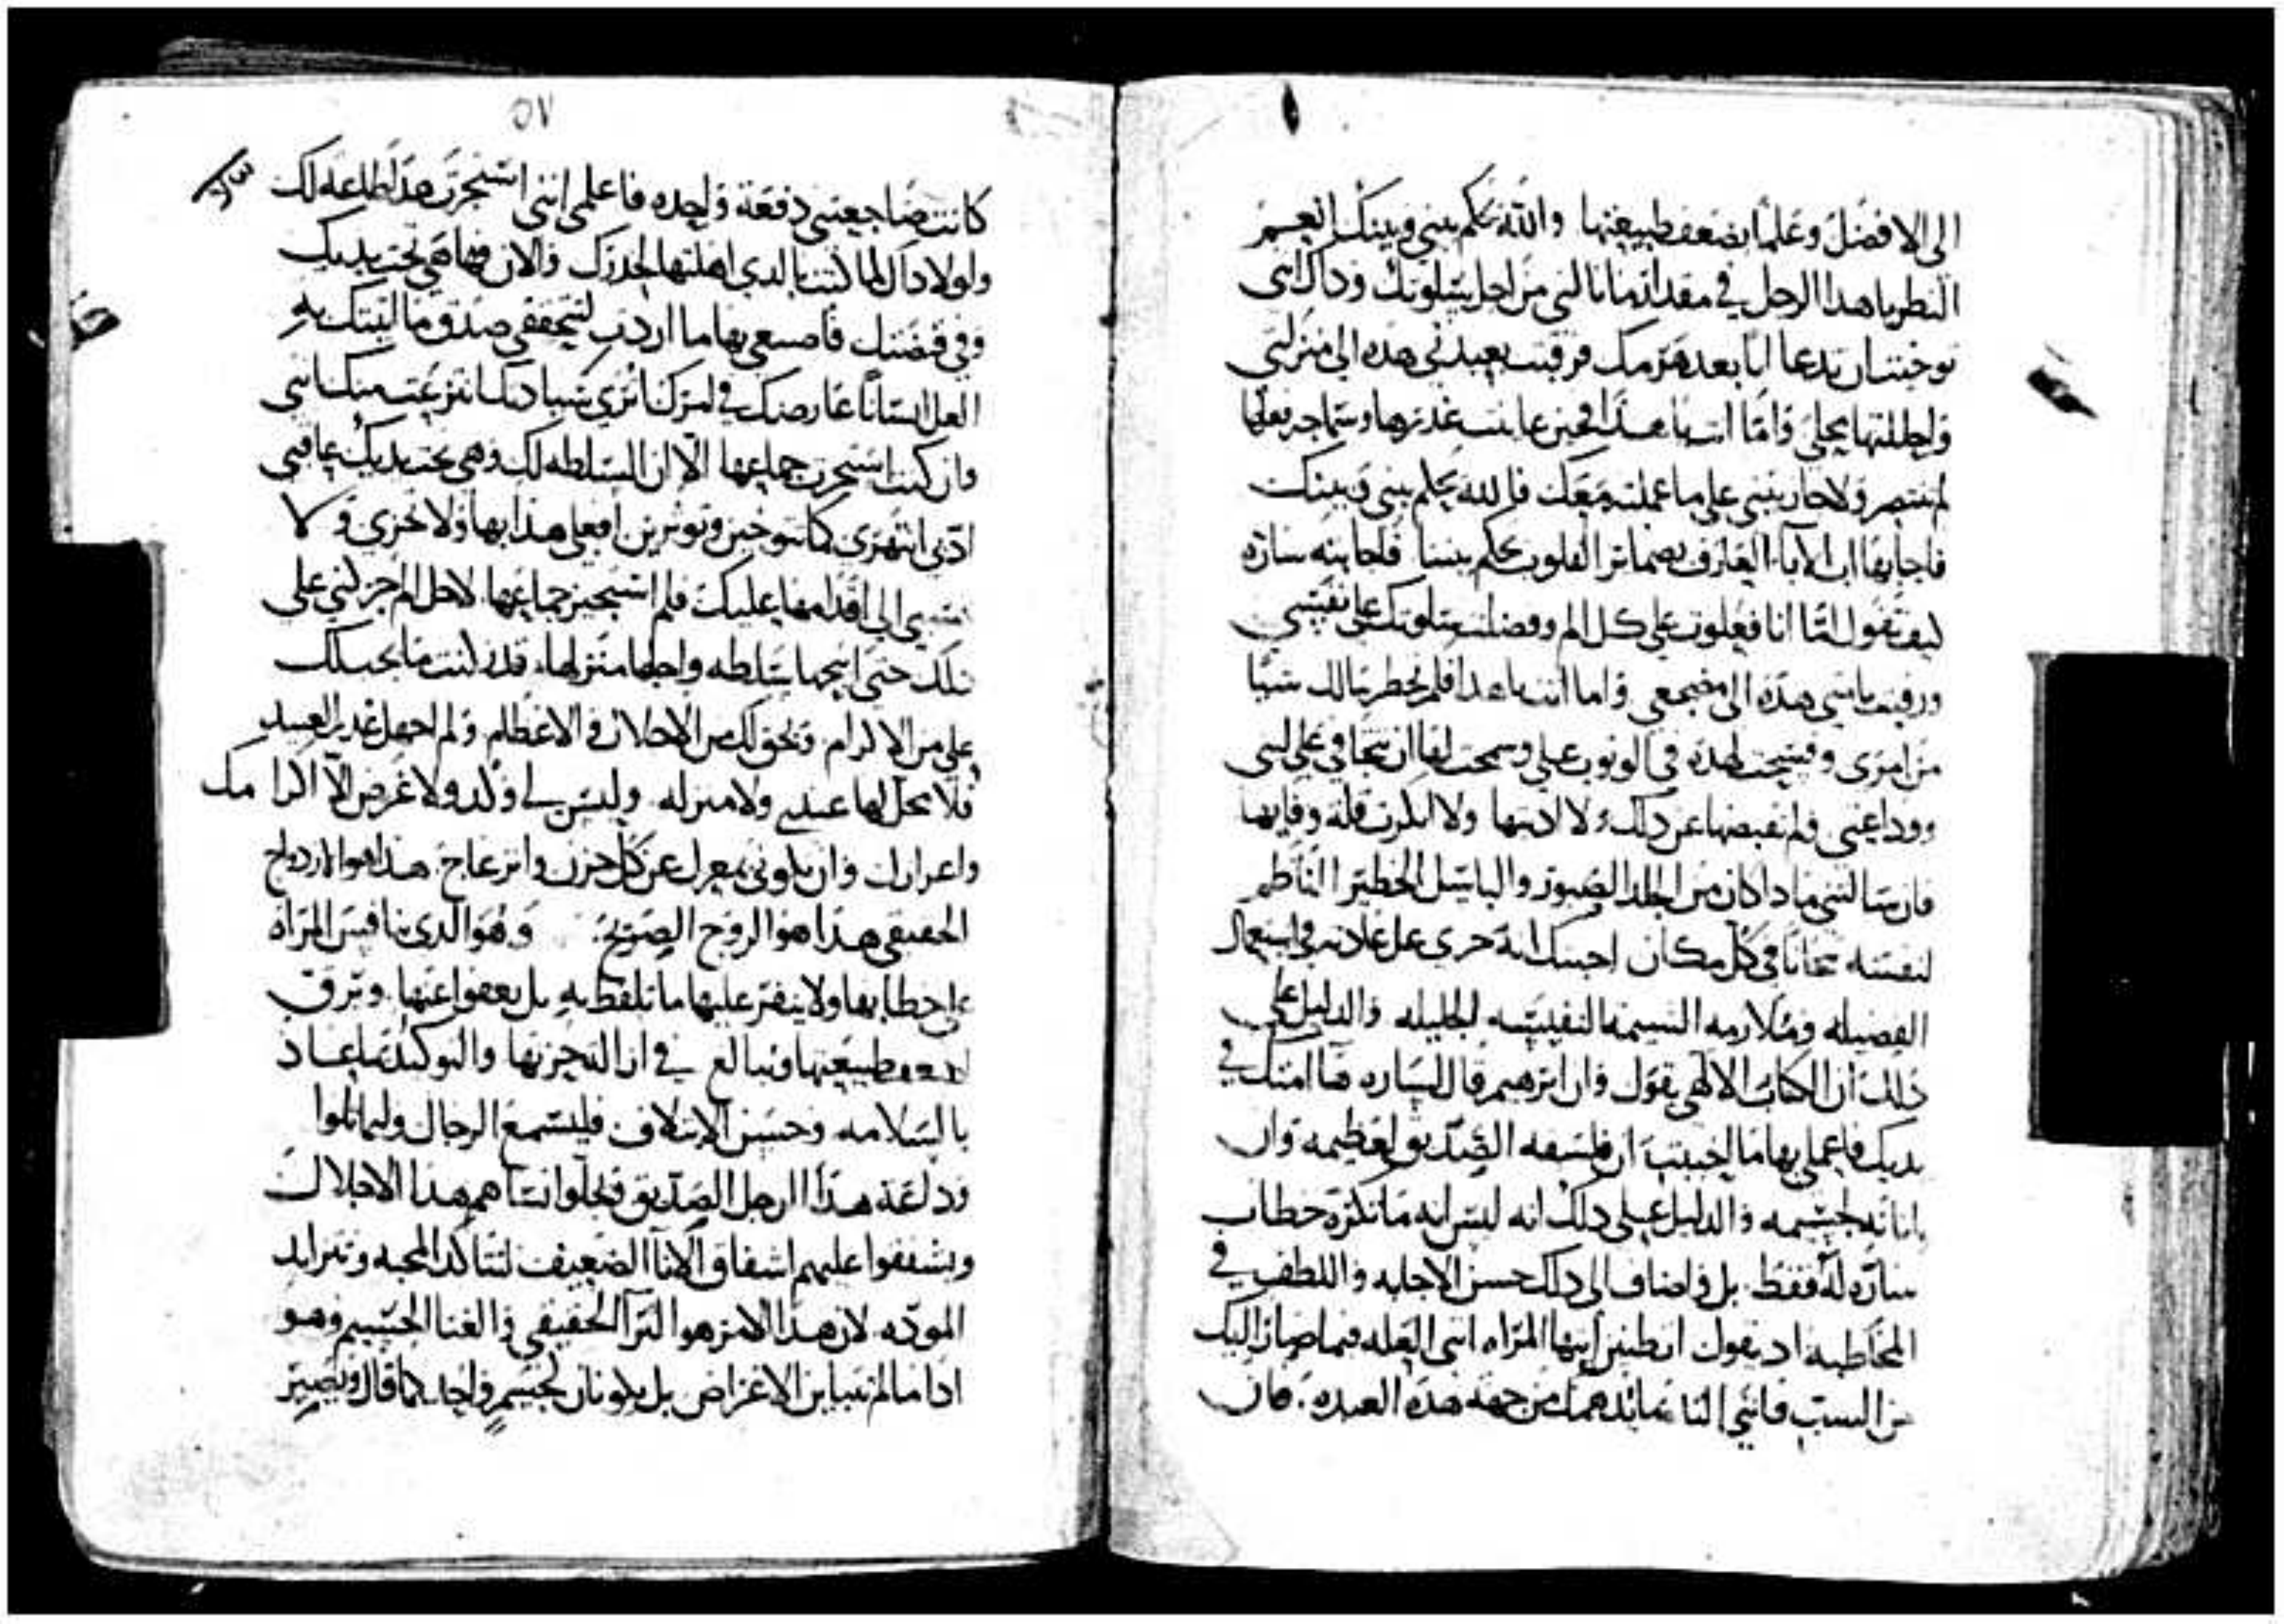 الى الافضل وعلما بضعف طبيعتها والله يحكم بيني وبينك انعم
النظر يا هذا الرجل في مقدار ما نالني من اجل سلوتك وداك انني
توخيت ان تدعا ابا بعد هرمك فرقيت بعبدتي هذه الى منزلتي
واحللتها محلي واما انت يا هذا فحين عاينت غدرها وسماجة فعلها
لم تنتصر ولا جازيتني على ما عملته معك فالله يحكم بيني وبينك
فاجابها اب الابا العارف بضماير القلوب يحكم بيننا فاجابته ساره
كيف تقول اما انا فعلوت على كل الم وفضلت سلوتك على نفسي
ورقيت بامتي هذه الى مضجعي واما انت يا هذا فلم يخطر ببالك شيا
من امري وفسحت لهذه في الوثوب علي وسمحت لها ان تجافي على لبني
ووداعتي ولم تقبضها عن ذلك ولا ادبتها ولا انكرت قلة وفايها
فان سالتني ماذا كان من الجلد الصبور والباسل الخطير الناظم
لنفسه تيجانا في كل مكان اجبتك انه جرى على عادته في استعمال
الفضيله وملازمه الشيمه النفيسه الجليله والدليل على
ذلك ان الكتاب الالهي يقول وان ابرهيم قال لساره ها امتك في
يديك فاعملي بها ما احببت ان فلسفه الصديق لعظيمه وان
اناته لجسيمه والدليل على ذلك انه ليس انه ما نكره خطاب
ساره له فقط بل واضاف الى ذلك حسن الاجابه واللطف في
المخاطبه اذ يقول اتظنين ايتها المراه انني العله فيما صار اليك
من السبب فانني انا شاهد همك من جهه هذه العبده فان
٥٧
كانت ضاجعتني دفعة واحده فاعلمي انني استجرت هذا لطاعه لك
ولولا داك لما كنت بالذي اهلتها لحدرك والان فها هي تحت يديك
وفي قبضتك فاصنعي بها ما اردت لتتحققي صدق ما اتيتك به
العل انسانا عارضك في امرك اترى سيادتك انتزعت منك انني
وان كنت استجرت جماعها الا ان السلطه لك وهي تحت يديك عاقبي
ادبي انتهري كما تتوخين وتوثرين افعلي هذا بها ولا تحزني ولا
تنسبي الي اقدامها عليك فلم استجيز جماعها لاجل الم حركني على
ذلك حتى امنحها سلطه واجلها منزلها قد كنت ما يجب لك
علي من الاكرام ويحق لك من الاجلال والاعظام ولم اجهل غدر العبيد
فلا محل لها عندي ولا منزله وليس لي ولد ولا غرض الا اكرامك
واعزازك وان تكوني بمعزل عن كل حزن وانزعاج هذا هو الازدواج
الحقيقي هذا هو الزوج الصريح وهو الذي ينافس المراه
على خطابها ولا ينفر عليها ما تلفظ به بل يعفوا عنها وترق
طبيعتها ويبالغ في ازالة حزنها والتوكيد
بالسلامه وحسن الايتلاف فليسمع الرجال وليماثلوا
وداعة هذا الرجل الصديق فيجلوا نساهم هذا الاجلال
ويشفقوا عليهم اشفاق الانا الضعيف لتتاكد المحبه وتتزايد
الموده لان هذا الامر هو الثرا الحقيقي والغنا الجسيم وهو
اذا ما لم تتباين الاغراض بل يكونان كجسم واحد كما قال ويصير